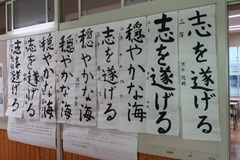 志を遂げる
志を遂げる
穏やかな海
志を遂げる
穏やかな海
穏やかな海
穏やかな海
志を遂げる
志を遂げる